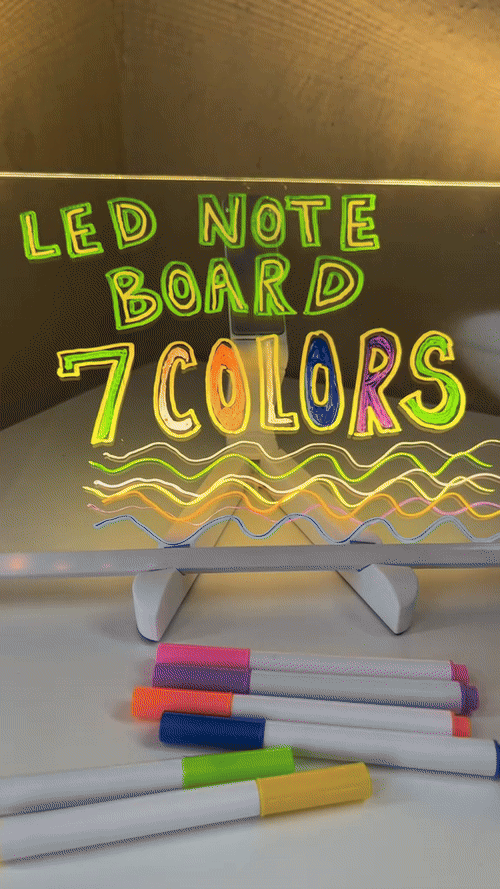 LED NOTE
BOARD
7 COLORS